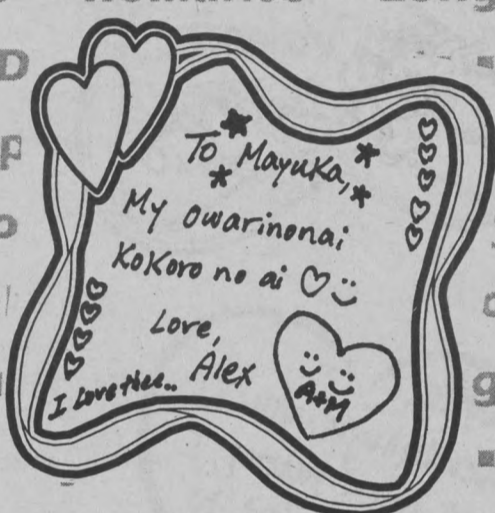 To Mayuka,
My owarinonai
Kokoro no ai
Love,
Alex
I Love thee..
A+M